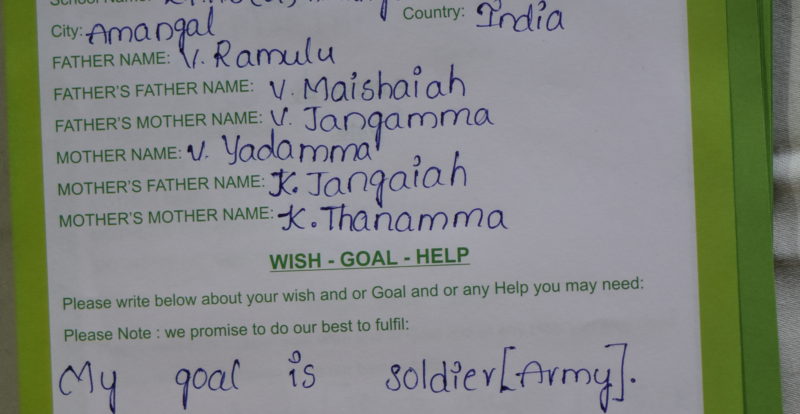 School Name:
City: Amangal Country: India
FATHER NAME: V. Ramulu
FATHER'S FATHER NAME: V. Maishaiah
FATHER'S MOTHER NAME: V. Jangamma
MOTHER NAME: V. Yadamma
MOTHER'S FATHER NAME: K. Jangaiah
MOTHER'S MOTHER NAME: K. Thanamma
WISH - GOAL - HELP
Please write below about your wish and or Goal and or any Help you may need:
Please Note : we promise to do our best to fulfil:
My goal is soldier[Army].